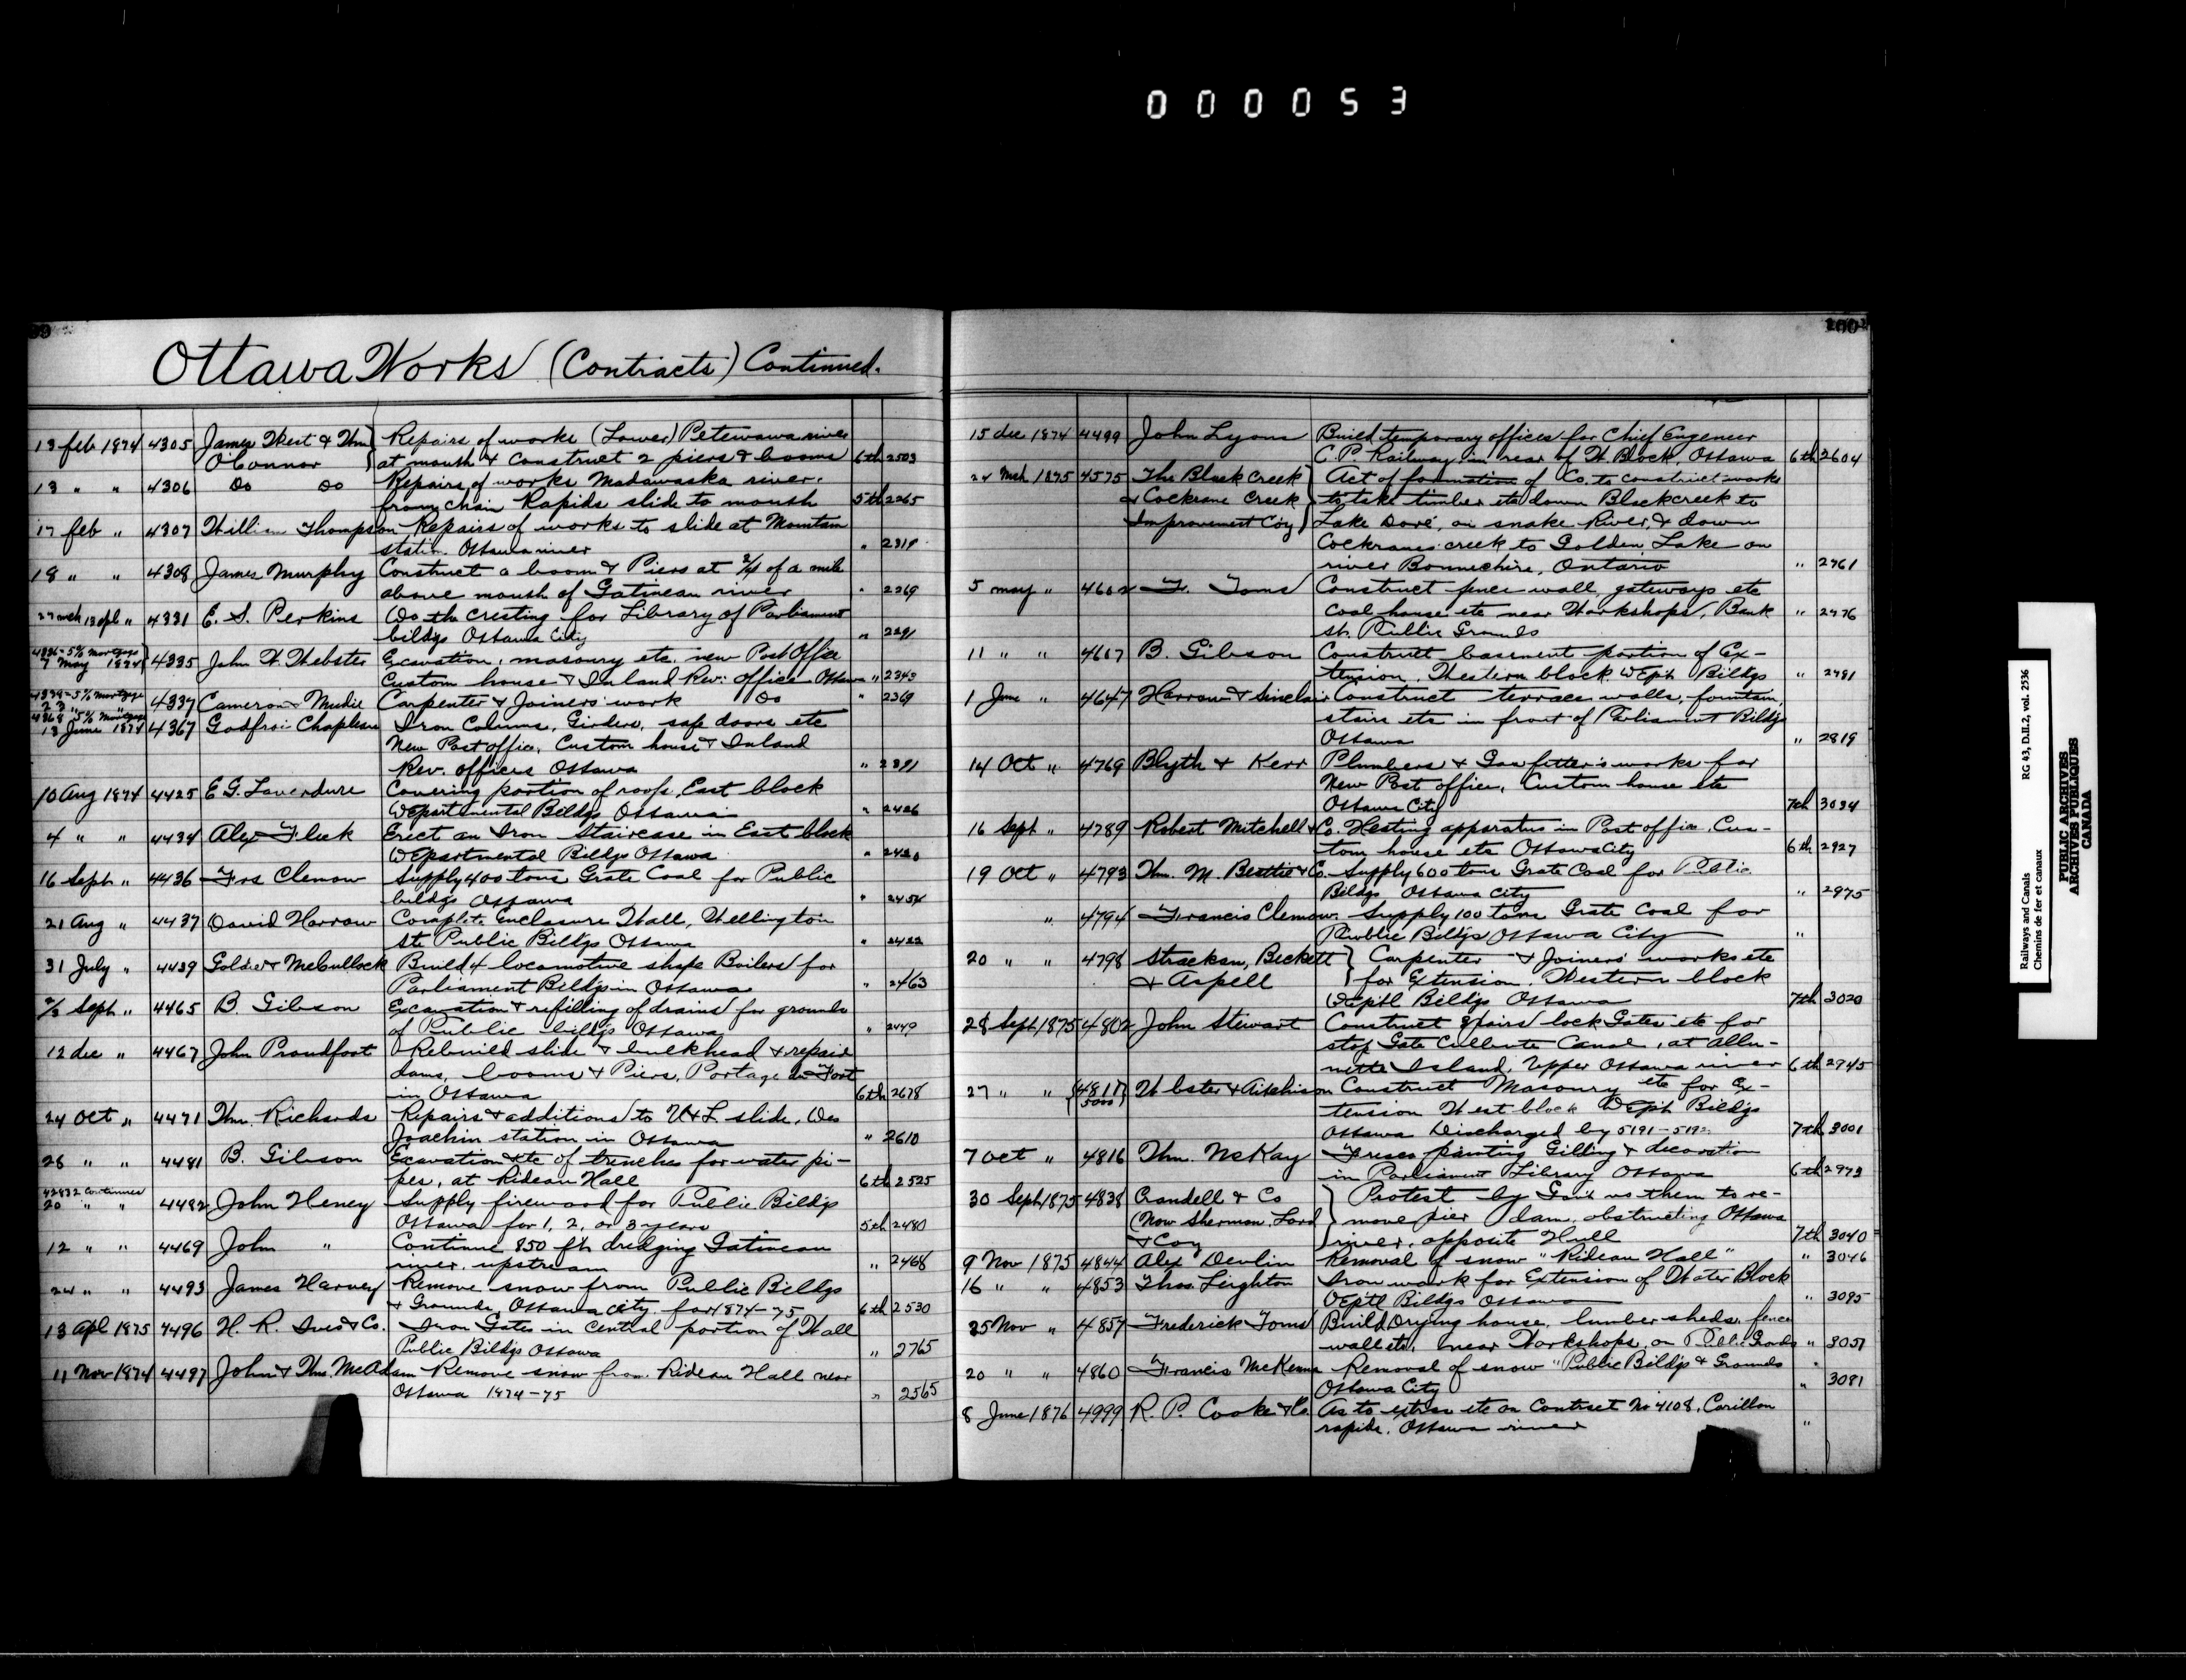 000053
99
Ottawa Works (Contracts) Continued.
13 feb 1874 4305 James West & Wm } Repairs of works (Lower) Petewawa river
O'Connor } at mouth & construct 2 piers & booms 6th 2503
13 " " 4306 Do Do Repairs of works Madawaska river.
from chain Rapids slide to mouth 5th 2265
17 feb " 4307 William Thompson Repairs of works to slide at Mountain
station. Ottawa river "
18 " " 4308 James Murphy Construct a boom & Piers at 3/4 of a mile
above mouth of Gatineau river " 2269
4331 E. S. Perkins Do the cresting for Library of Parliament
bildgs Ottawa City " 2291
4336-5% mortgage
7 May 1874 4335 John W. Webster Excavation, masonry etc. new Post Office
Custom house & Inland Rev: office Ottawa " 2343
5% mortgage
23 " " 4337 Cameron & Mudie Carpenter & Joiners' work Do " 2369
4368 5% mortgage
13 June 1874 4367 Godfroi Chapleau Iron Colums, Girders, safe doors etc
New Post office, Custom house & Inland
Rev. offices Ottawa "
10 Aug 1874 4425 E G. Laverdure Covering portion of roofs, East block
Departmental Bildgs Ottawa " 2426
4 " " 4434 Alex Fleck Erect an Iron Staircase in East block
Departmental Bildgs Ottawa "
16 Seph " 4436 Frs Clemow Supply 400 tons Grate Coal for Public
bildgs Ottawa " 2454
21 Aug " 4437 David Harrow Complete Enclosure Wall, Wellington
ste Public Bildgs Ottawa " 2422
31 July " 4439 Goldie & McCullock Build 4 locomotive shape Boilers for
Parliament Bildgs in Ottawa " 2463
Seph " 4465 B. Gibson Excavation & refilling of drains for grounds
of Public bildgs Ottawa " 2449
12 dec " 4467 John Proudfoot Rebuild slide & bulkhead & repair
dams, booms & Piers, Portage du Fort
in Ottawa 6th 2678
24 Oct " 4471 Wm. Richards Repairs & additions to U & L slide, Des
Joachin station in Ottawa " 2610
28 " " 4481 B. Gibson Excavation &tc of trenches for water pi-
pes, at Rideau Hall 6th 2525
continues
20 " " 4482 John Heney Supply firewood for Public Bildgs
Ottawa for 1, 2, or 3 years 5th 2480
12 " " 4469 John " Continue 850 ft dredging Gatineau
river. upstream " 2468
24 " " 4493 James Harvey Remove snow from Public Bildgs
& Grounds, Ottawa city. for 1874-75 6th 2530
13 Apl 1875 4496 H. R. Ives & Co. Iron Gates in central portion of Wall
Public Bildgs Ottawa " 2765
11 Nov 1874 4497 John & Wm. McAdam Remove snow from Rideau Hall near
Ottawa 1874-75 " 2565
100
15 dec 1874 4499 John Lyons Build temporary offices for Chief Engeneer
C. P. Railway in rear of W. Block, Ottawa 6th 2604
24 Mch 1875 4575 The Black Creek } Act of formation of Co. to construct works
& Cockrane Creek } to take timber etc down Blackcreek to
Improvement Coy } Lake Doré, on snake River, & down
Cockranes creek to Golden Lake on
river Bonnechire, Ontario " 2761
5 may " 4602 F. Toms Construct fence wall, gateways etc
coal house etc near Workshops, Bank " 2776
st. Public Grounds
11 " " 4607 B. Gibson Construct basement portion of Ex-
tension, Western block Dept Bildgs " 2781
1 June " 4647 Harrow & Sinclair Construct terrace walls, fountain,
stairs etc in front of Parliament Bildgs
Ottawa " 2819
14 Oct " 4769 Blyth & Kerr Plumbers & Gasfitter's works for
New Post office, Custom house etc
Ottawa City 7th 3034
16 Sept " 4789 Robert Mitchell & Co. Heating apparatus in Post office, Cus-
tom house etc Ottawa City 6th 2927
19 Oct " 4793 Wm. M. Beattie & Co. Supply 600 tons Grate Coal for Public
Bildgs Ottawa City " 2975
" 4794 Francis Clemow. Supply 100 tons Grate Coal for
Public Bildgs Ottawa City "
20 " " 4798 Strackan, Beckett } Carpenter & Joiners' works etc
& Aspell } for Extension, Western block
Dep'tl Bildgs Ottawa 7th 3020
28 Sept 1875 4802 John Stewart Construct 2 pairs lock Gates etc for
stop Gate Culbute Canal, at Allu-
mette Island, Upper Ottawa river 6th 2945
27 " " (4811) Webster & Aitchison Construct Masonry etc for Ex-
5000 tension West block Dept Bildgs
Ottawa Discharged by 5191- 7th 3001
7 Oct " 4816 Wm. McKay Fresco painting Gilling & decoration
in Parliament Library Ottawa 6th 2973
30 Seph 1875 4838 Crandell & Co } Protest by Govt vs them to re-
(Now Sherman, Lord } move pier dam, obstructing Ottawa
& Coy } river, opposite Hull 7th 3040
9 Nov 1875 4844 Alex Devlin Removal of snow "Rideau Hall" " 3046
16 " " 4853 Thos. Leighton Iron work for Extension of Water Block
Dep'tl Bildgs Ottawa " 3095
25 Nov " 4857 Frederick Toms Build Drying house, lumber sheds, fence
wall etc, near Workshops, on Public Grds " 3057
20 " " 4860 Francis McKenna Removal of snow "Public Bildgs & Grounds
Ottawa City " 3081
8 June 1876 4999 R. P. Cooke & Co. As to extras etc on Contract No 4108, Carillon
rapids. Ottawa river "
Railways and Canals RG 43, D.II.2, vol. 2536
Chemins de fer et canaux
PUBLIC ARCHIVES
ARCHIVES PUBLIQUES
CANADA